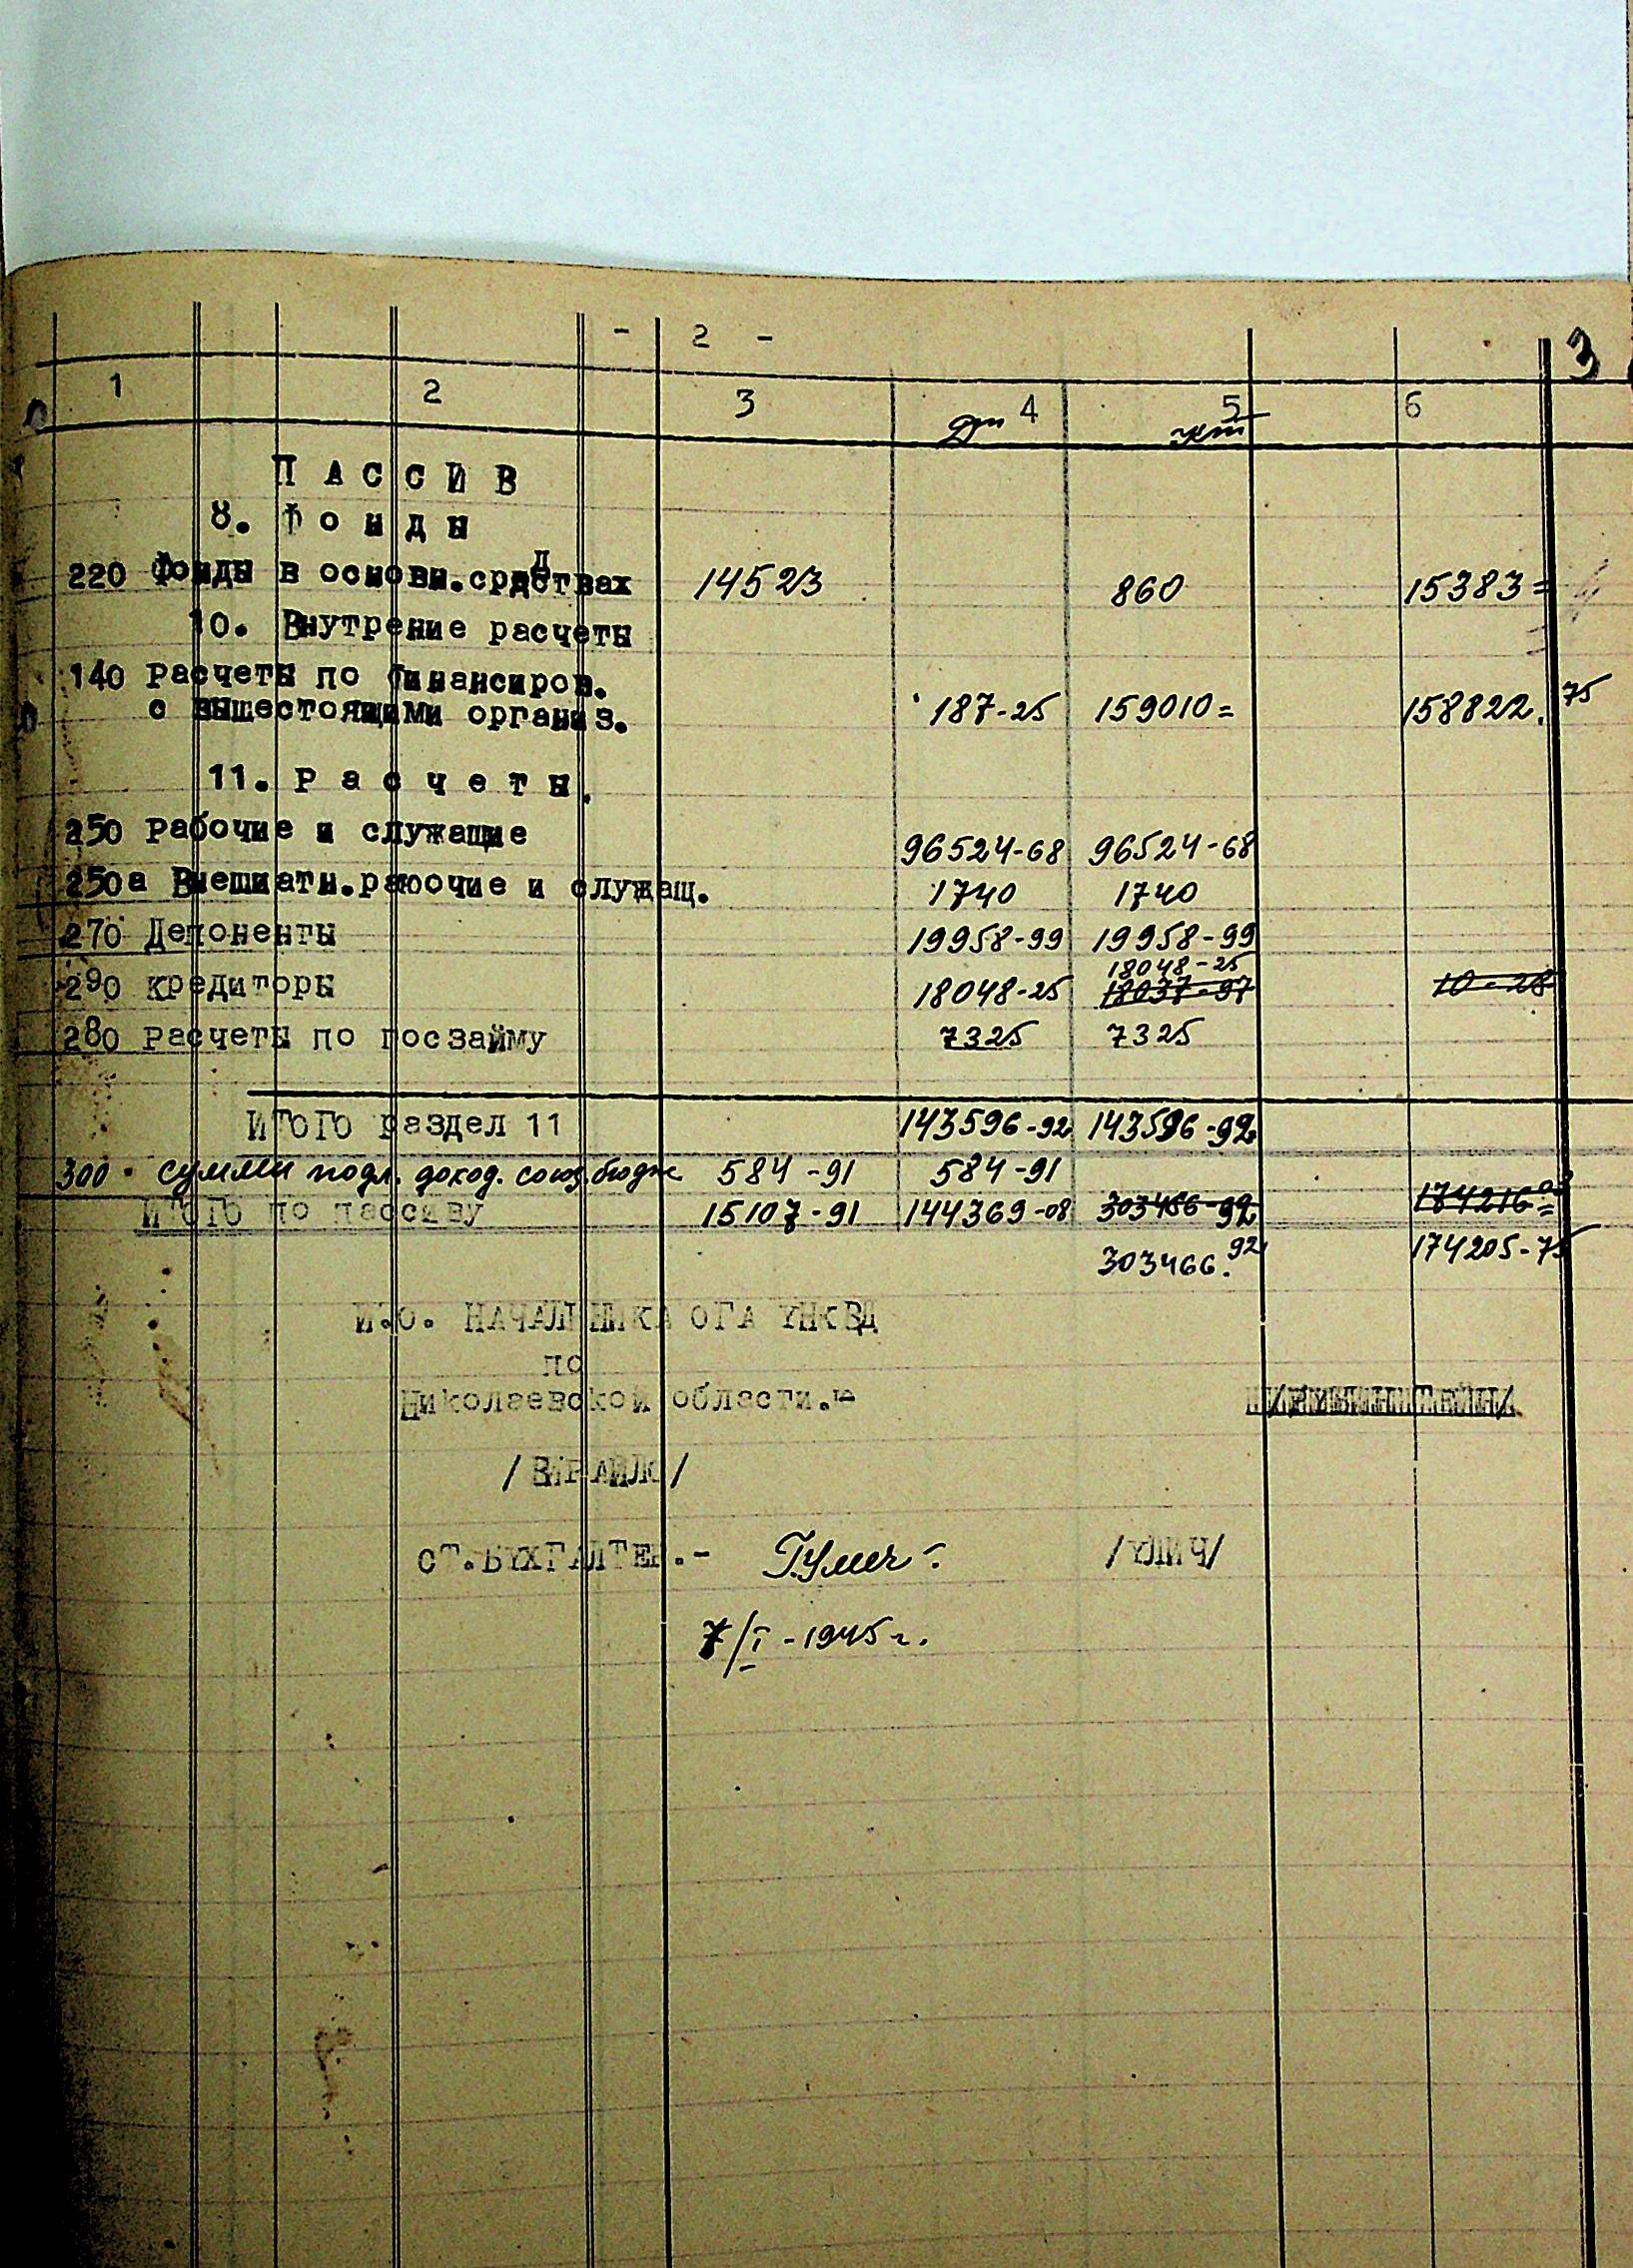 - 2 -
3
1 2 3 4 5 6
дт кт
ПАССИВ
8. Фонды
220 Фонды в основн.средствах 14523 860 15383=
10. Внутрение расчеты
140 Расчеты по финансиров.
с вышестоящими организ. 187-25 159010= 158822.75
11. Расчеты.
250 Рабочие и служащие 96524-68 96524-68
250а Внештатн.рабочие и служащ. 1740 1740
270 Депоненты 19958-99 19958-99
18048-25
290 кредиторы 18048-25 18037-97 10-28
280 Расчеты по госзайму 7325 7325
ИТОГО раздел 11 143596-92 143596-92
300. суммы подл. доход. союз. бюдж 584-91 584-91
ИТОГО по пассиву 15107-91 144369-08 303466-92 174216=
303466.92 174205-75
И.О. НАЧАЛЬНИКА ОГА УНКВД
по
Николаевской области.
СТ.БУХГАЛТЕР.- Г.Улич /УЛИЧ/
7/I-1945г.